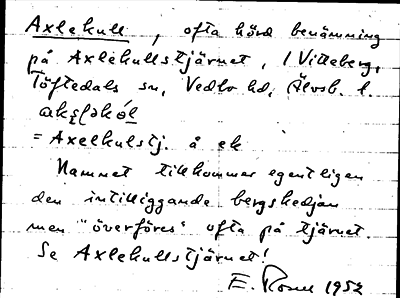 Axlekull, ofta hörd benämning
på Axlekullstjärnet, i Villeberg,
Töftedals sn, Vedbo hd, Älvsb. l.
= Axelkulstj. å ek
Namnet tillkommer egentligen
den intilliggande bergskedjan
men "överföres" ofta på tjärnet.
Se Axlekullstjärnet!
E. 1952